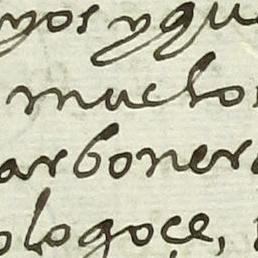 yos y que
muchos
arboner
ologoçe,